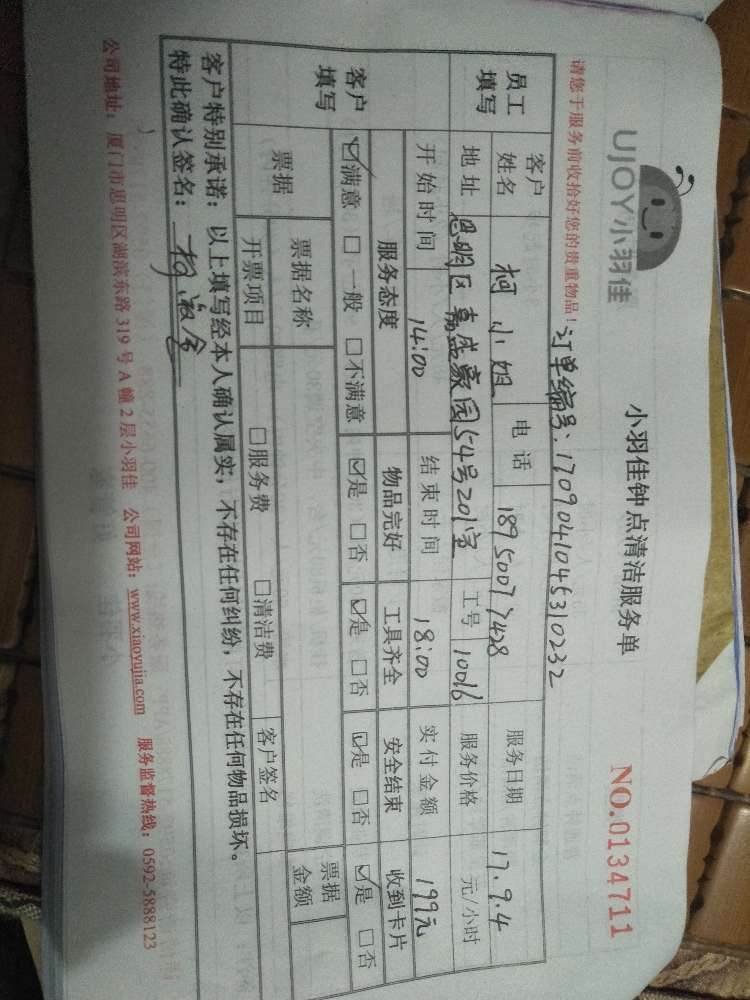 UJOY小羽佳
小羽佳钟点清洁服务单
NO.0134711
请您于服务前收拾好您的贵重物品!
订单编号:1709041045310232
员工填写
客户姓名 柯小姐 电话 18950077428 服务日期 17.9.4
地址 思明区嘉盛豪园54号201室 工号 10016 服务价格 元/小时
开始时间 14:00 结束时间 18:00 实付金额 199元
客户填写
服务态度 物品完好 工具齐全 安全结束 收到卡片
☑满意 □一般 □不满意 ☑是 □否 ☑是 □否 ☑是 □否 ☑是 □否
票据 票据名称 票据金额
开票项目 □服务费 □清洁费 客户签名
客户特别承诺:以上填写经本人确认属实,不存在任何纠纷,不存在任何物品损坏。
特此确认签名:柯
公司地址:厦门市思明区湖滨东路319号A幢2层小羽佳 公司网站:www.xiaoyujia.com 服务监督热线:0592-5888123